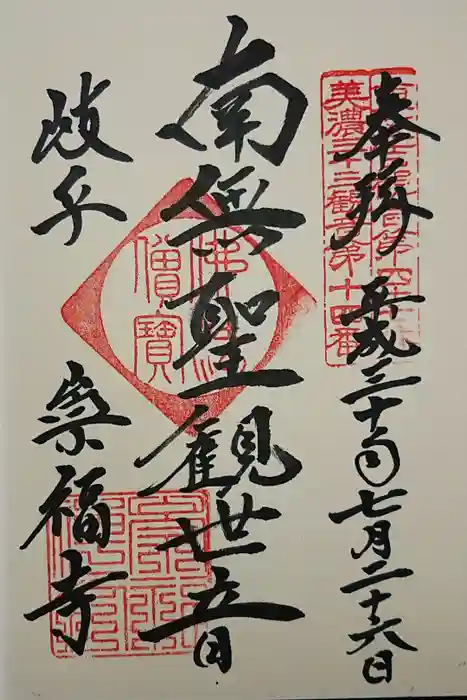 奉拝
平成三十年七月二十六日
美濃三十三觀音第十四番
南無聖観世音
佛法
僧寶
岐阜
崇福寺